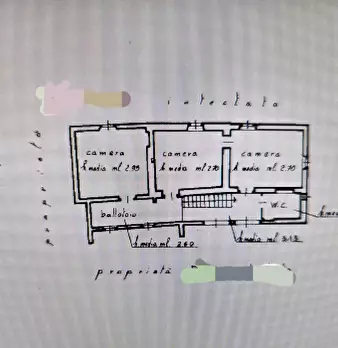 intestata
camera
h media ml 2.95
camera
h media ml 2.70
camera
h media ml 2.70
proprietà
ballatoio
W.C.
h media ml 2.60
h media ml
proprietà